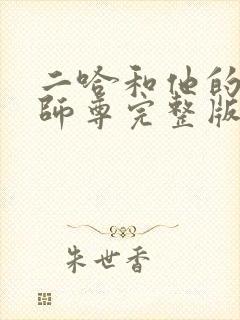 二哈和他的
師尊完整版
朱世香